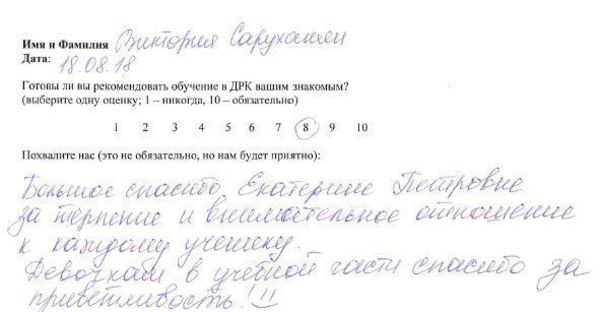 Имя и Фамилия Виктория Саруханян
Дата: 18.08.18
Готовы ли вы рекомендовать обучение в ДРК вашим знакомым?
(выберите одну оценку; 1 – никогда, 10 – обязательно)
1 2 3 4 5 6 7 8 9 10
Похвалите нас (это не обязательно, но нам будет приятно):
Большое спасибо Екатерине Петровне
за терпение и внимательное отношение
к каждому ученику.
Девочкам в учебной части спасибо за
приветливость!